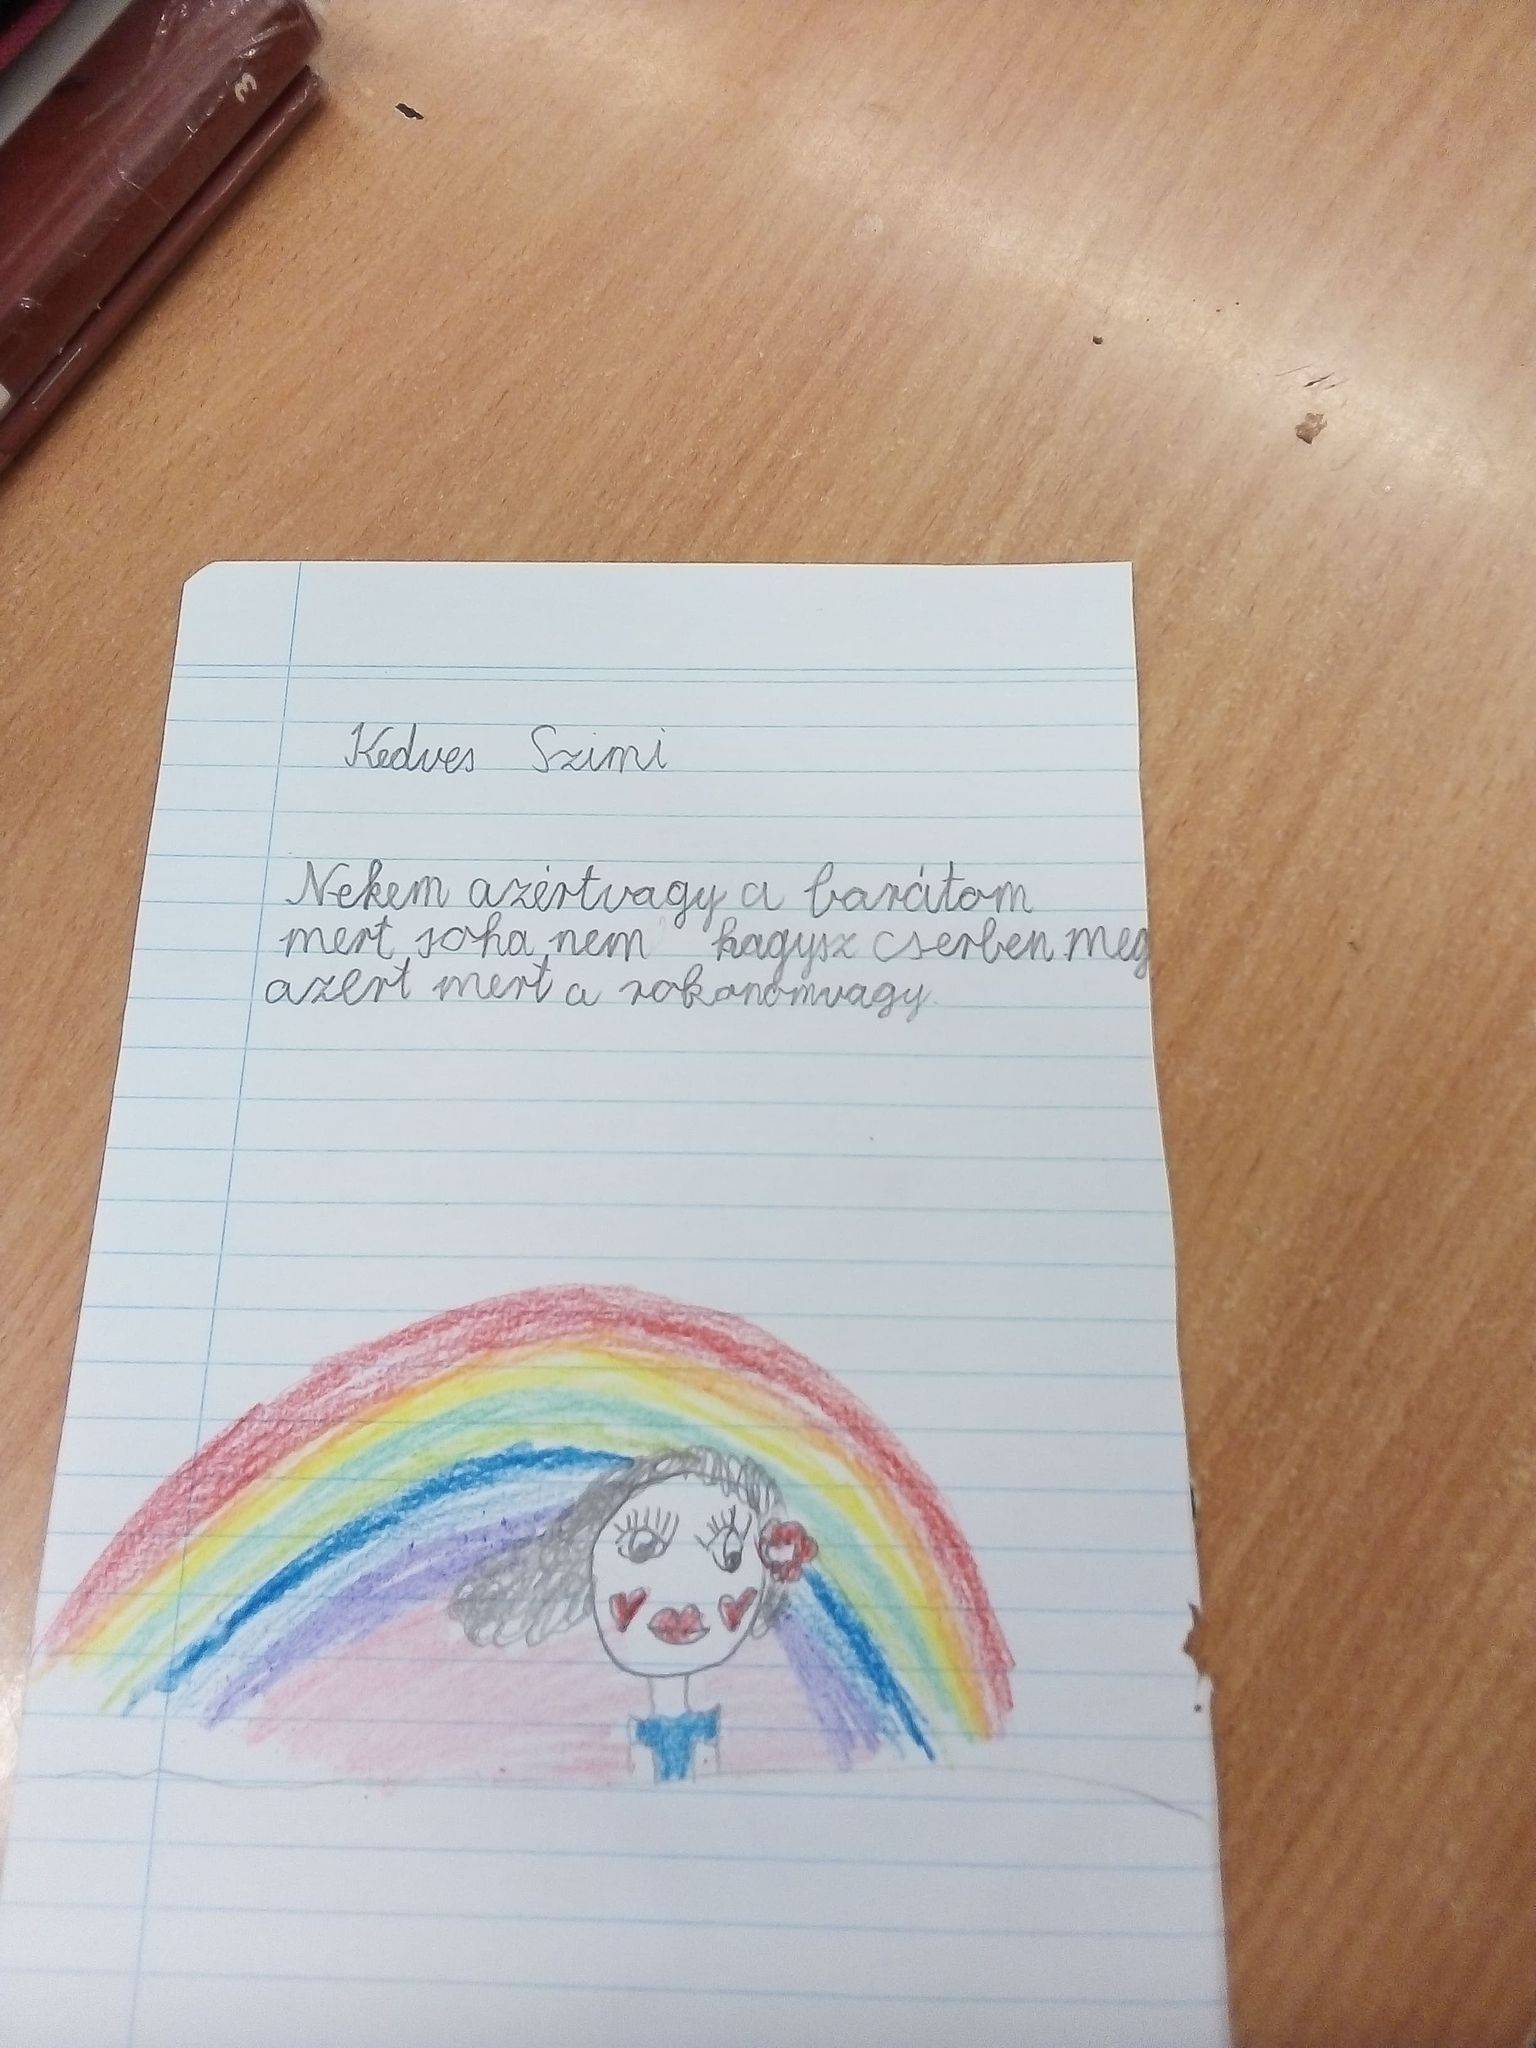 3
Kedves Szimi
Nekem azértvagy a barátom
mert soha nem hagysz cserben meg
azert mert a rokonomvagy.